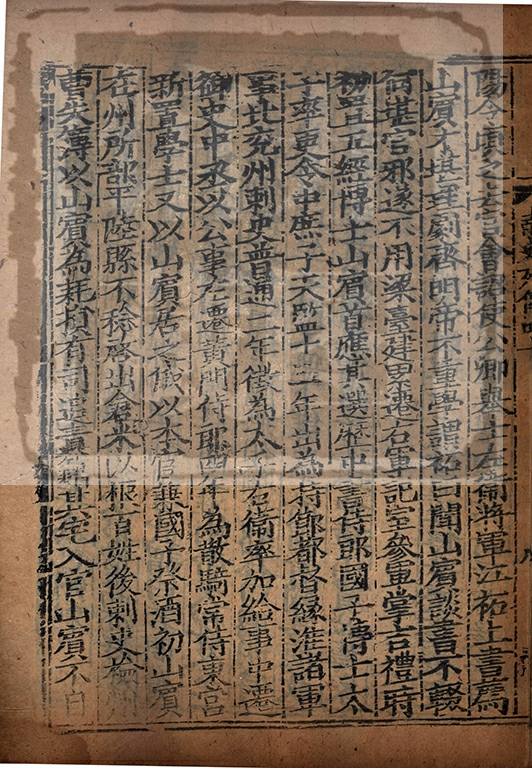 陽令頃之去官會詔使公卿舉士左衛將軍江祏上書薦
山賓才堪理劇齊明帝不重學謂祏曰聞山賓談書不輟
何堪官邪遂不用梁臺建累遷右軍記室參軍掌吉禮時
初置五經博士山賓首應其選歷中書侍郎國子博士太
子率更令中庶子天監十五年出為持節都督緣淮諸軍
事北兗州刺史普通二年徵為太子右衛率加給事中遷
御史中丞以公事左遷黃門侍郎四年為散騎常侍東宮
新置學士又以山賓居之俄以本官兼國子祭酒初山賓
在州所部平陸縣不稔啓出倉米以振百姓後刺史檢州
曹失簿以山賓為耗損有司追責籍其宅入官山賓不自